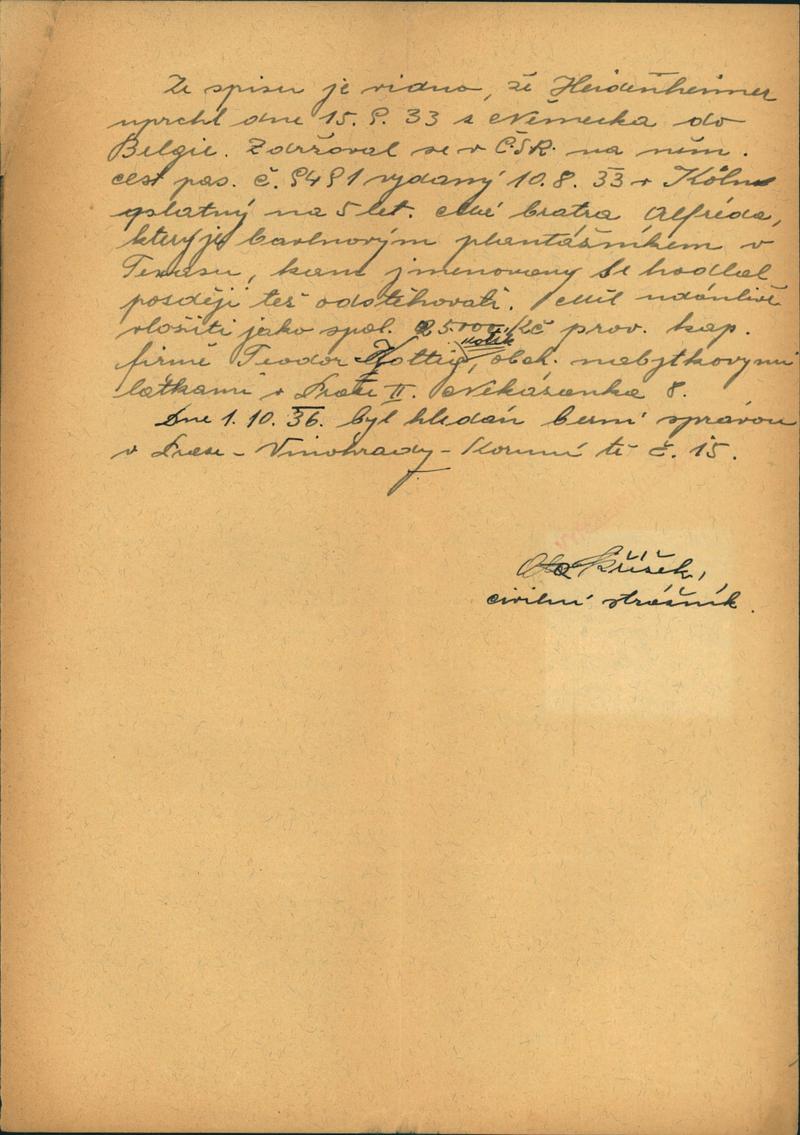 Ze spisu je vidno, že Heidenheimer
uprchl dne 15. 9. 33 z Německa do
Belgie. Zdržoval se v ČSR. na něm.
cest. pas. č. 9491 vydaný 10. 8. 33 v Kölnu
platný na 5 let. Má bratra Alfréda,
který je bavlnovým plantážníkem v
Texasu, kam jmenovaný se hodlal
později též odstěhovati. Měl údánlivě
vložiti jako spol. 25000 Kč prov. kap.
firmě Teodor obch. nábytkovými
látkami v Praze II. Nekázanka 8.
Dne 1. 10. 36. byl hledán berní správou
v Praze - Vinohrady - Korunní tř. č. 15.
Ota Kříšek,
civilní strážník.